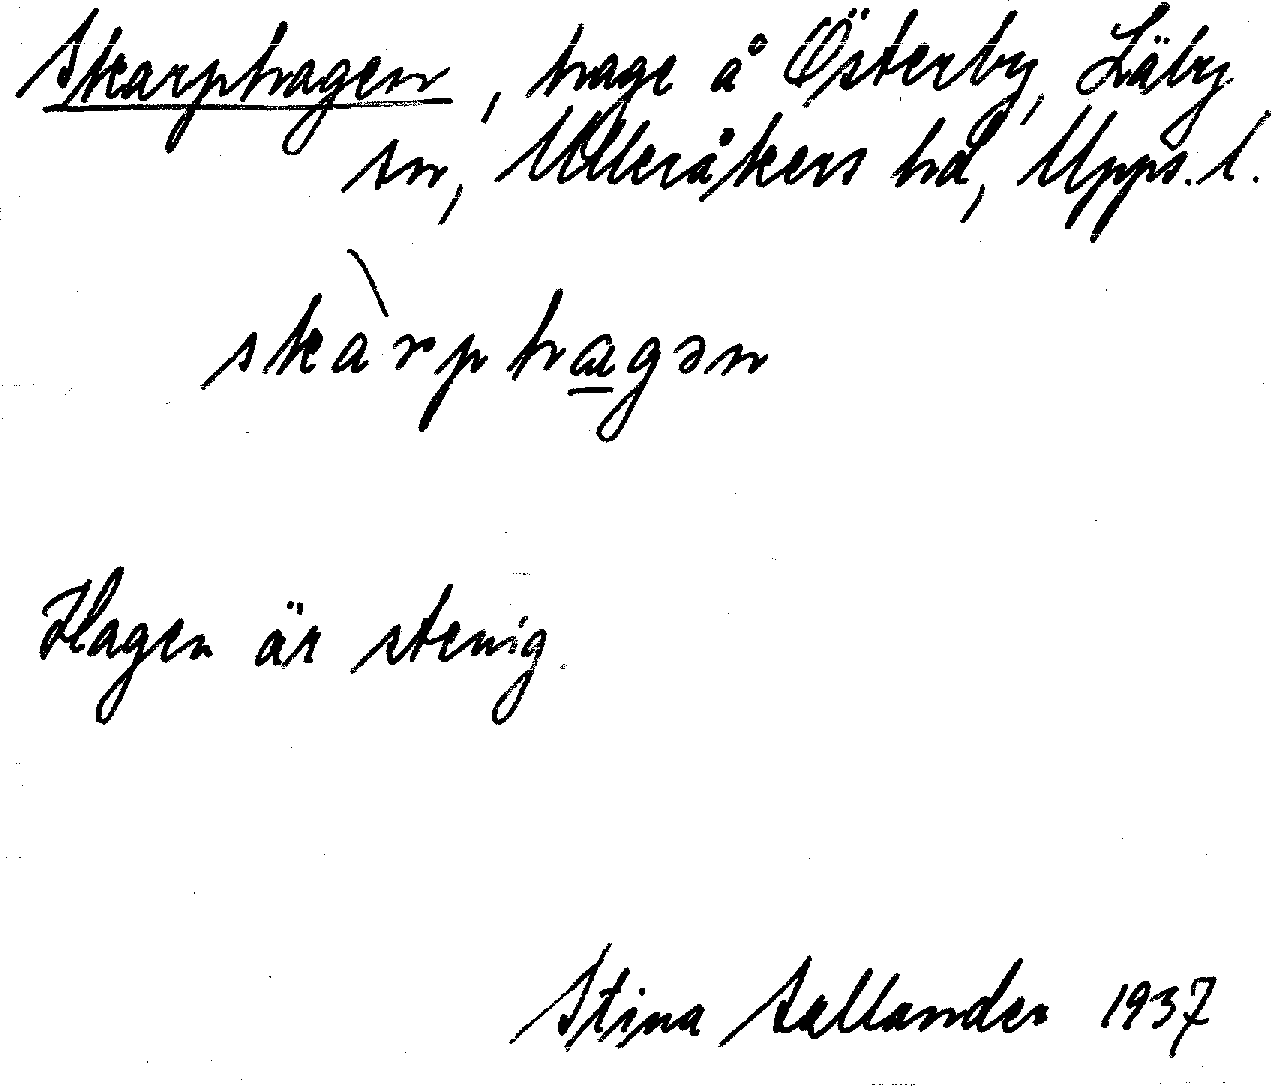 Skarphagen, hage å Österby, Läby
sn, Ulleråkers hd, Upps. l.
skàrphαgən
Hagen är stenig.
Stina Sællander 1937